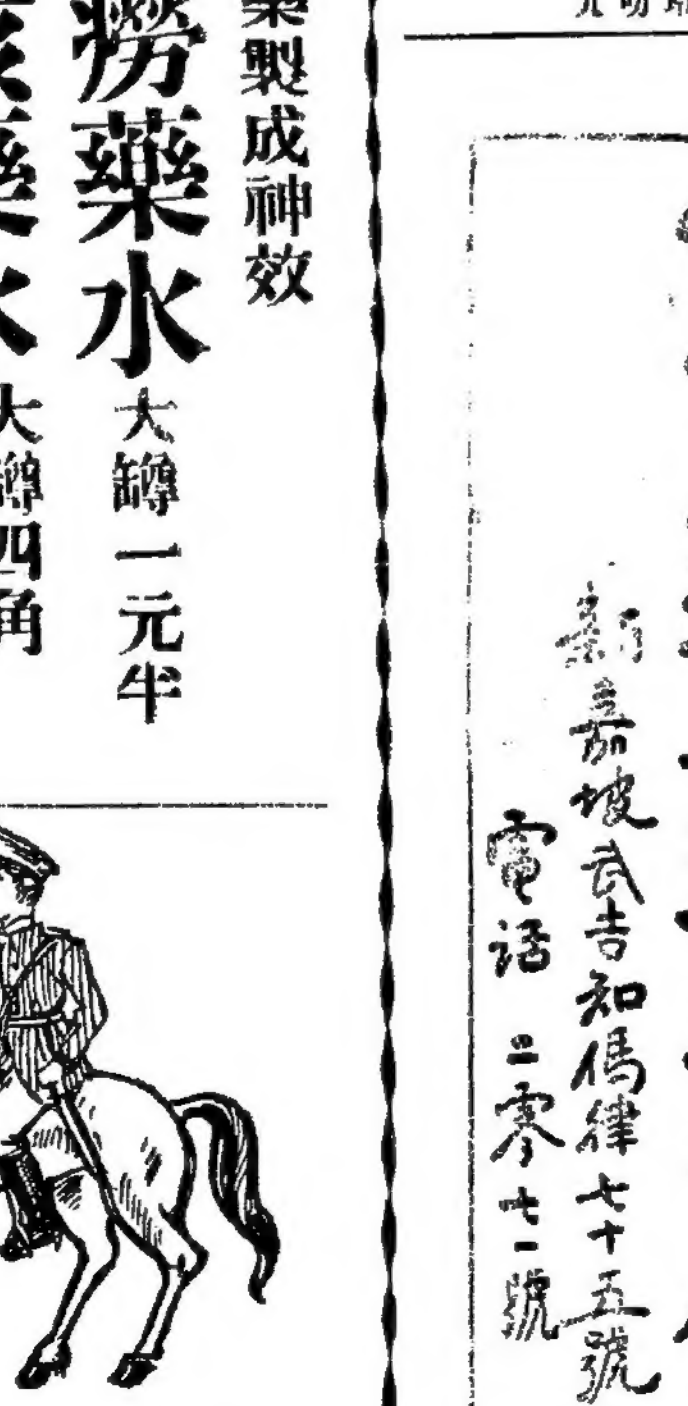 新嘉坡武吉知馬律七十五號
電話 二零七一號
製成神效
癆藥水 大罇一元半
水 大罇四角